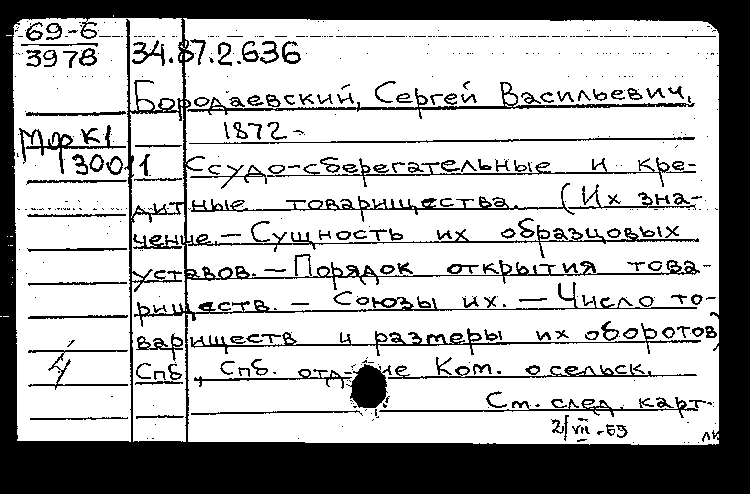 69-6
3978
34.87.2.636
Бородаевский, Сергей Васильевич,
1872-
Мфк1
30011
Ссудо-сберегательные и кре-
дитные товарищества. (Их зна-
чение.- Сущность их образцовых
уставов. - Порядок открытия това-
риществ. - Союзы их. - Число то-
вариществ и размеры их оборотов)
Спб., Спб. отд-ние Ком. о сельск.
См. след. карт.